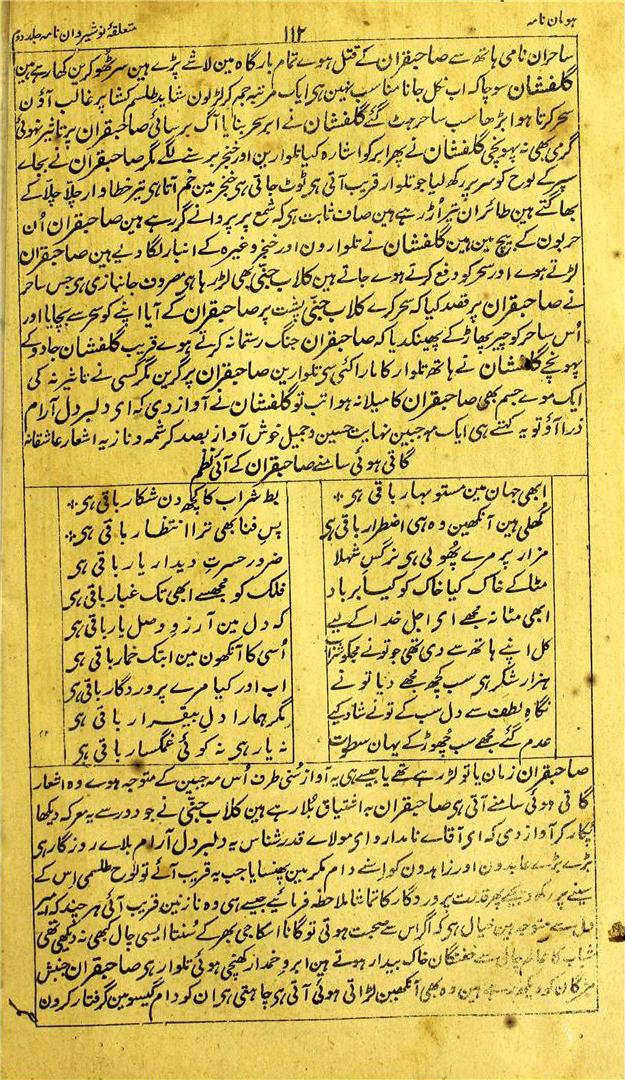 ہومان نامہ
۱۱۲
متعلقۂ نوشیروان نامہ جلد دوم
ساحران نامی ہاتھ سے صاحبقران کے قتل ہوے تمام بارگاہ مین لاشے پڑے ہین سر ٹھوکرین کھا رہے ہین
گلفشان سوچا کہ اب نکل جانا مناسب نہین ہی ایک مرتبہ جم کر لڑلون شاید طلسم کشا پر غالب آؤن
سحر کرتا ہوا بڑھا سب ساحر ہٹ گئے گلفشان نے ابر سحر بنایا آگ برسائی صاحبقران پر تاثیر نہوئی
گرمی بھی نہ پہونچی گلفشان نے پھر ابر کو اشارہ کیا تلوارین اور خنجر برسنے لگے مگر صاحبقران نے بجاے
سپر کے لوح کو سر پر رکھ لیا جو تلوار قریب آتی ہی ٹوٹ جاتی ہی خنجر مین خم آتا ہی تیر خطا وار چلا چلا کے
بھاگتے ہین طائران تیر اُڑ رہے ہین صاف ثابت ہی کہ شمع پر پروانے گر رہے ہین صاحبقران اُن
حربون کے بیچ مین ہین گلفشان نے تلوارون اور خنجر وغیرہ کے انبار لگا دیے ہین صاحبقران
لڑتے ہوے اور سحر کو دفع کرتے ہوے جاتے ہین کلاب جنّی بھی لڑ رہا ہی مصروف جانبازی ہی جس ساحر
نے صاحبقران پر قصد کیا کہ سحر کرے کلاب جنّی پشت پر صاحبقران کے آیا اپنے کو سحر سے بچایا اور
اُس ساحر کو چیر پھاڑ کے پھینکدیا کہ صاحبقران جنگ رستمانہ کرتے ہوے قریب گلفشان جادو کے
پہونچے گلفشان نے ہاتھ تلوار کا مارا کئی سی تلوارین صاحبقران پر گرین مگر کسی نے تاثیر نہ کی
ایک موے جسم بھی صاحبقران کا میلا نہ ہوا تب تو گلفشان نے آواز دی کہ ای دلبر دل آرام
ذرا آؤ تو یہ کہتے ہی ایک مہ جبین نہایت حسین و جمیل خوش آواز بصد کرشمہ و ناز یہ اشعار عاشقانہ
گاتی ہوئی سامنے صاحبقران کے آئی نظم
ابھی جہان مین مستو بہار باقی ہی
بط شراب کا کچھ دن شکار باقی ہی
کھلی ہین آنکھین وہ ہی اضطرار باقی ہی
پسِ فنا بھی ترا انتظار باقی ہی
مزار پر مرے پھولی ہی نرگسِ شہلا
ضرور حسرتِ دیدار یار باقی ہی
مٹا کے خاک کیا خاک کو کیا برباد
فلک کو مجھسے ابھی تک غبار باقی ہی
ابھی مٹا نہ مجھے ای اجل خدا کے لیے
کہ دل مین آرزوِ وصل یار باقی ہی
کل اپنے ہاتھ سے دی تھی جو تونے مجکو شراب
اُسی کا آنکھون مین ابتک خمار باقی ہی
ہزار شکر ہی سب کچھ مجھے دیا تو نے
اب اور کیا مرے پروردگار باقی ہی
نگاہِ لطف سے دل سب کے تونے شاد کیے
مگر ہمارا دلِ بیقرار باقی ہی
عدم گئے مجھے سب چھوڑ کے یہان سطوت
نہ یار ہی نہ کوئی غمگسار باقی ہی
صاحبقران زمان یا تو لڑ رہے تھے یا جیسے ہی یہ آواز سُنی طرف اُس مہ جبین کے متوجہ ہوے وہ اشعار
گاتی ہوئی سامنے آتی ہی صاحبقران بہ اشتیاق بُلا رہے ہین کلاب جنّی نے جو دور سے یہ معرکہ دیکھا
پکار کر آواز دی کہ ای آقاے نامدار و ای مولاے قدر شناس یہ دلبر دل آرام بلاے روزگار ہی
بڑے بڑے عابدون اور زاہدون کو اسنے دام مکر مین پھنسایا جب یہ قریب آئے تو لوح طلسمی اس کے
سینے پر رکھ دیجیے پھر قدرت پروردگار کا تماشا ملاحظہ فرمائیے جیسے ہی وہ نازنین قریب آئی ہر چند کہ
متوجہ ہین خیال ہی کہ اگر اس سے صحبت ہوتی تو گانا اسکا جی بھر کے سُنتا ایسی چال کبھی نہ دیکھی تھی
شباب کا عالم چال سے خفتگان خاک بیدار ہوتے ہین ابرو خمدار کھنچی ہوئی تلوار ہی صاحبقران جنبش
مژگان کو دیکھ رہے ہین وہ بھی آنکھین لڑاتی ہوئی آتی ہی چاہتی ہی ان کو دام گیسو مین گرفتار کرون